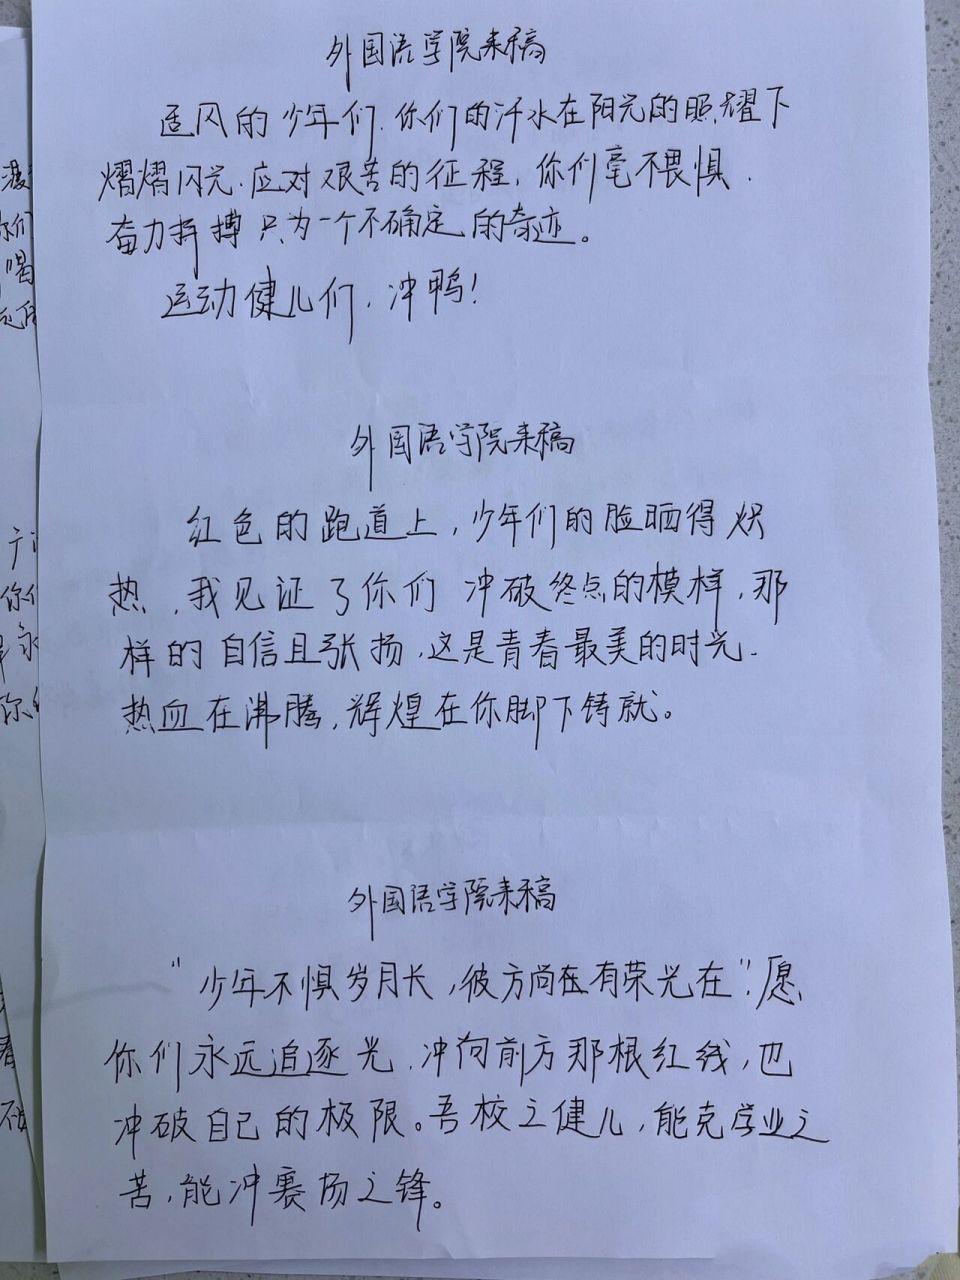 外国语学院来稿
追风的少年们,你们的汗水在阳光的照耀下
熠熠闪光.应对艰苦的征程,你们毫不畏惧.
奋力拼搏只为一个不确定的奇迹。
运动健儿们,冲鸭!
外国语学院来稿
红色的跑道上,少年们的脸晒得炽
热,我见证了你们冲破终点的模样,那
样的自信且张扬,这是青春最美的时光.
热血在沸腾,辉煌在你脚下铸就。
外国语学院来稿
“少年不惧岁月长,彼方尚在有荣光在”.愿
你们永远追逐光,冲向前方那根红线,也
冲破自己的极限。吾校之健儿,能克学业之
苦,能冲赛场之锋。